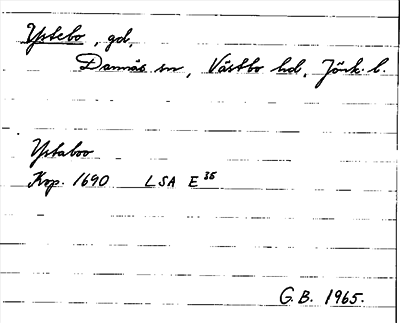 Ystebo, gd,
Dannäs sn, Västbo hd, Jönk. l.
Ystaboo
Kop. 1690 LSA E 36
G.B. 1965.